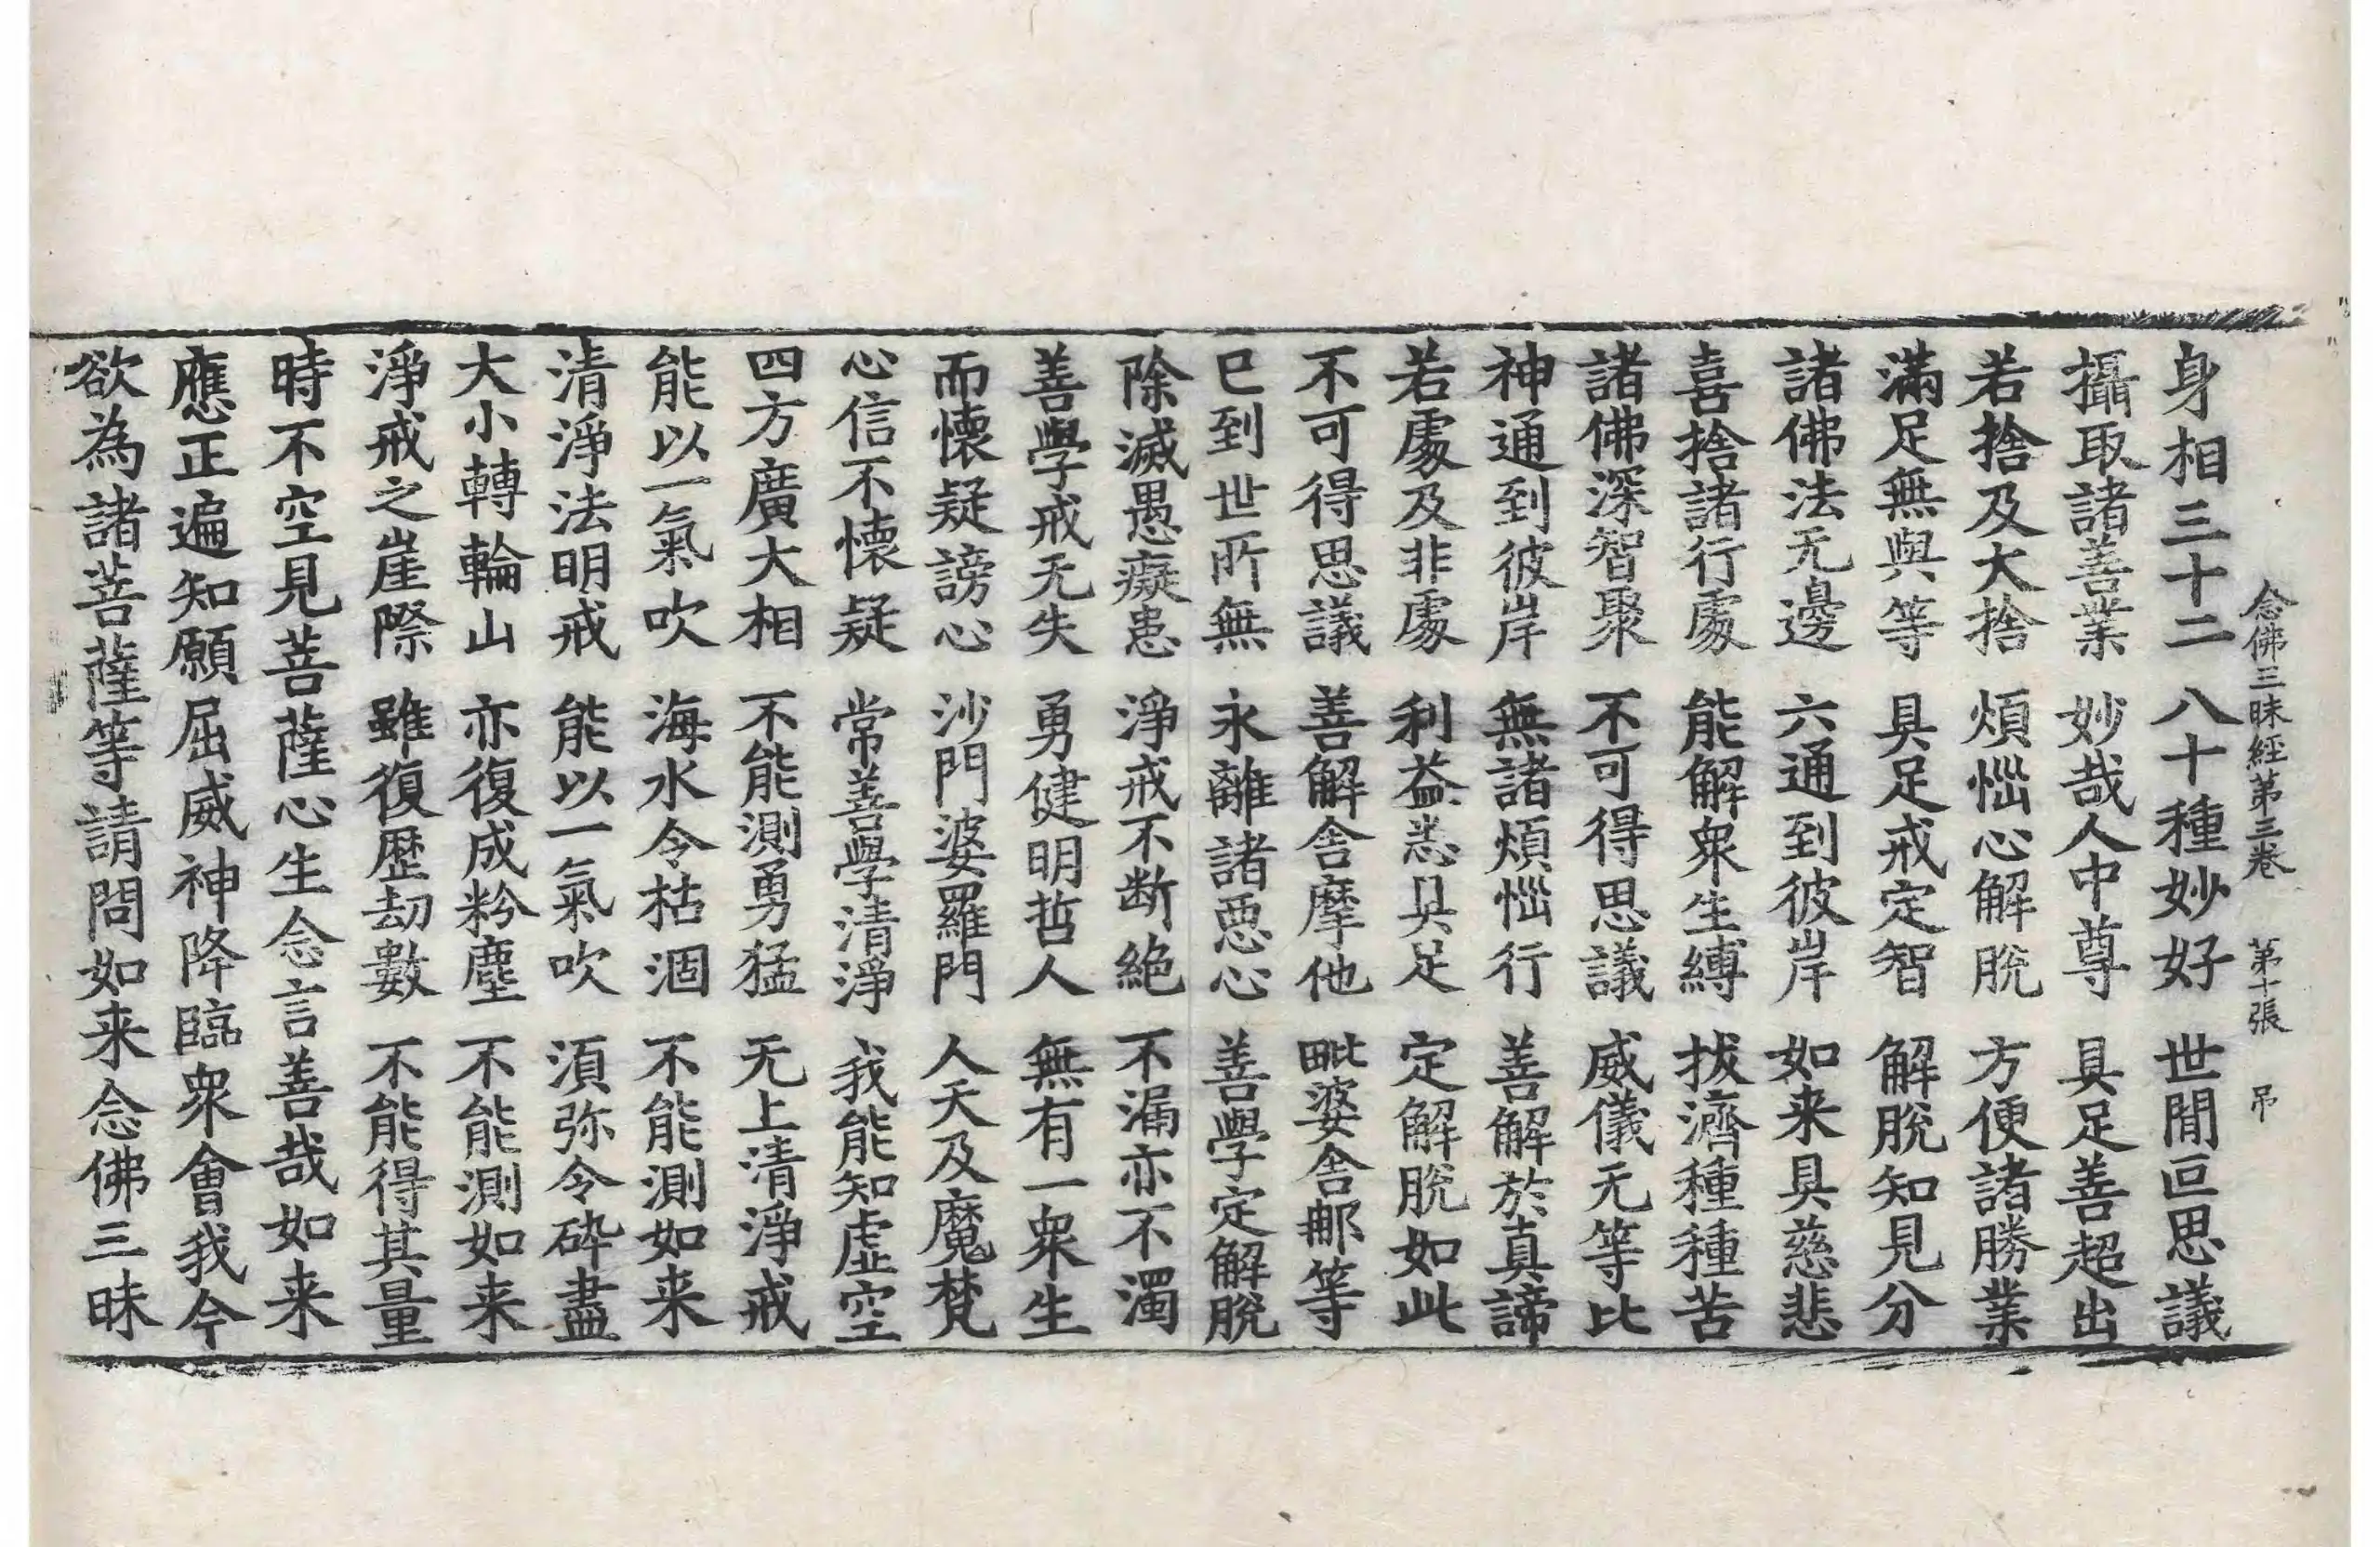 念佛三昧經第三卷 第十張 弔
身相三十二 八十種妙好 世間叵思議
攝取諸善業 妙哉人中尊 具足善超出
若捨及大捨 煩惱心解脫 方便諸勝業
滿足無與等 具足戒定智 解脫知見分
諸佛法无邊 六通到彼岸 如来具慈悲
喜捨諸行處 能解衆生縛 拔濟種種苦
諸佛深智聚 不可得思議 威儀无等比
神通到彼岸 無諸煩惱行 善解於真諦
若處及非處 利益悉具足 定解脫如此
不可得思議 善解舍摩他 毗婆舍那等
已到世所無 永離諸惡心 善學定解脫
除滅愚癡恚 淨戒不断絕 不漏亦不濁
善學戒无失 勇健明哲人 無有一衆生
而懷疑謗心 沙門婆羅門 人天及魔梵
心信不懷疑 常善學清淨 我能知虛空
四方廣大相 不能測勇猛 无上清淨戒
能以一氣吹 海水令枯涸 不能測如来
清淨法明戒 能以一氣吹 須弥令碎盡
大小轉輪山 亦復成粉塵 不能測如来
淨戒之崖際 雖復歷劫數 不能得其量
時不空見菩薩心生念言善哉如来
應正遍知願屈威神降臨衆會我今
欲為諸菩薩等請問如来念佛三昧